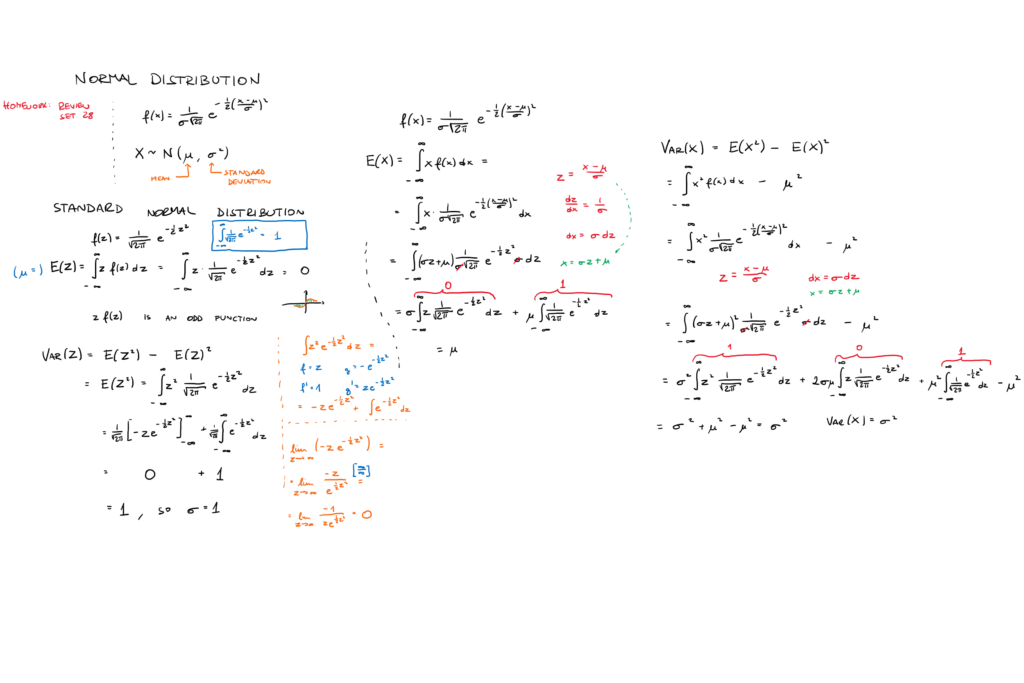 NORMAL DISTRIBUTION
HOMEWORK: REVIEW
SET 28
f(x) = 1/(σ√2π) e^(-½((x-μ)/σ)²)
X ~ N(μ, σ²)
MEAN
STANDARD
DEVIATION
STANDARD NORMAL DISTRIBUTION
f(z) = 1/√2π e^(-½z²)
∫_{-∞}^{∞} 1/√2π e^(-½z²) = 1
(μ=) E(Z) = ∫_{-∞}^{∞} z f(z) dz = ∫_{-∞}^{∞} z · 1/√2π e^(-½z²) dz = 0
z f(z) IS AN ODD FUNCTION
VAR(Z) = E(Z²) - E(Z)²
= E(Z²) = ∫_{-∞}^{∞} z² 1/√2π e^(-½z²) dz
= 1/√2π [-ze^(-½z²)]_{-∞}^{∞} + 1/√2π ∫_{-∞}^{∞} e^(-½z²) dz
= 0 + 1
= 1, so σ=1
∫z²e^(-½z²) dz =
f = z g = -e^(-½z²)
f' = 1 g' = ze^(-½z²)
= -ze^(-½z²) + ∫e^(-½z²) dz
lim_{z→∞} (-ze^(-½z²)) =
= lim_{z→∞} -z/e^(½z²) [∞/∞] =
= lim_{z→∞} -1/(ze^(½z²)) = 0
f(x) = 1/(σ√2π) e^(-½((x-μ)/σ)²)
E(X) = ∫_{-∞}^{∞} x f(x) dx =
= ∫_{-∞}^{∞} x · 1/(σ√2π) e^(-½((x-μ)/σ)²) dx
= ∫_{-∞}^{∞} (σz+μ) 1/(σ√2π) e^(-½z²) σ dz
0 1
= σ∫_{-∞}^{∞} z 1/√2π e^(-½z²) dz + μ∫_{-∞}^{∞} 1/√2π e^(-½z²) dz
= μ
z = (x-μ)/σ
dz/dx = 1/σ
dx = σ dz
x = σz+μ
VAR(X) = E(X²) - E(X)²
= ∫_{-∞}^{∞} x² f(x) dx - μ²
= ∫_{-∞}^{∞} x² 1/(σ√2π) e^(-½((x-μ)/σ)²) dx - μ²
z = (x-μ)/σ dx = σ dz
x = σz+μ
= ∫_{-∞}^{∞} (σz+μ)² 1/(σ√2π) e^(-½z²) σ dz - μ²
1 0 1
= σ²∫_{-∞}^{∞} z² 1/√2π e^(-½z²) dz + 2σμ∫_{-∞}^{∞} z 1/√2π e^(-½z²) dz + μ²∫_{-∞}^{∞} 1/√2π e^(-½z²) dz - μ²
= σ² + μ² - μ² = σ² VAR(X) = σ²